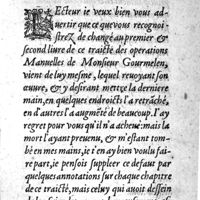 LEcteur ie veux bien vous ad-
uertir que ce que vous recognoi-
strez de changé au premier &
second liure de ce traicté des operations
Manuelles de Monsieur Gourmelen,
vient de luy mesme, lequel reuoyant son
œuure, & y desirant mettre la derniere
main, en quelques endroicts l'a retraché,
en d'autres l'a augmẽté de beaucoup. I'ay
regret pour vous qu'il n'a acheué: mais la
mort l'ayant preuenu, & m'estant tom-
bé en mes mains, ie i'en ay bien voulu fai-
re part, ie pensois suppleer ce defaut par
quelques annotations sur chaque chapitre
de ce traicté, mais celuy qui auoit dessein